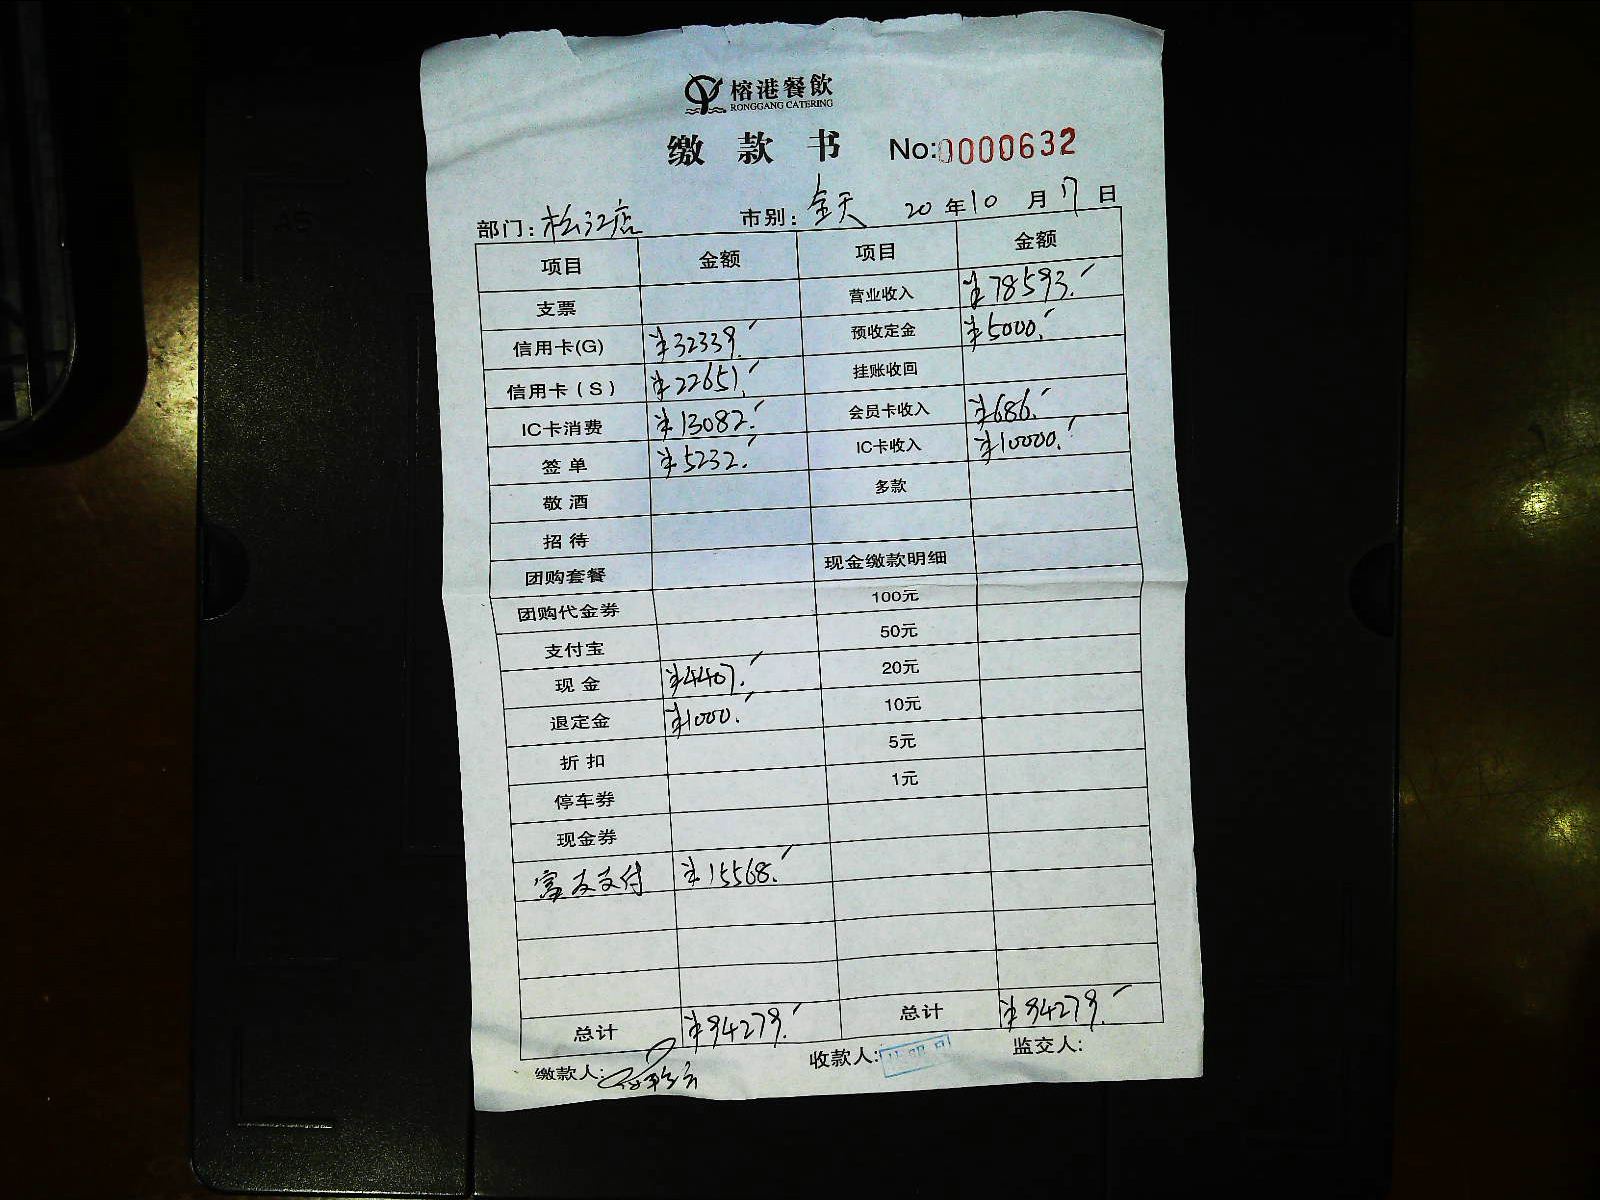 榕港餐飲
RONGGANG CATERING
缴 款 书 No:0000632
部门: 松江店 市别: 全天 20 年 10 月 7 日
项目 金额 项目 金额
支票 营业收入 ¥78593.
信用卡(G) ¥32339. 预收定金 ¥5000.
信用卡(S) ¥22651. 挂账收回
IC卡消费 ¥13082. 会员卡收入 ¥686.
签单 ¥5232. IC卡收入 ¥10000.
敬酒 多款
招待
团购套餐 现金缴款明细
团购代金券 100元
支付宝 50元
现金 ¥4407. 20元
退定金 ¥1000. 10元
折扣 5元
停车券 1元
现金券
富友支付 ¥15568.
总计 ¥94279. 总计 ¥94279.
缴款人: 收款人: 监交人: